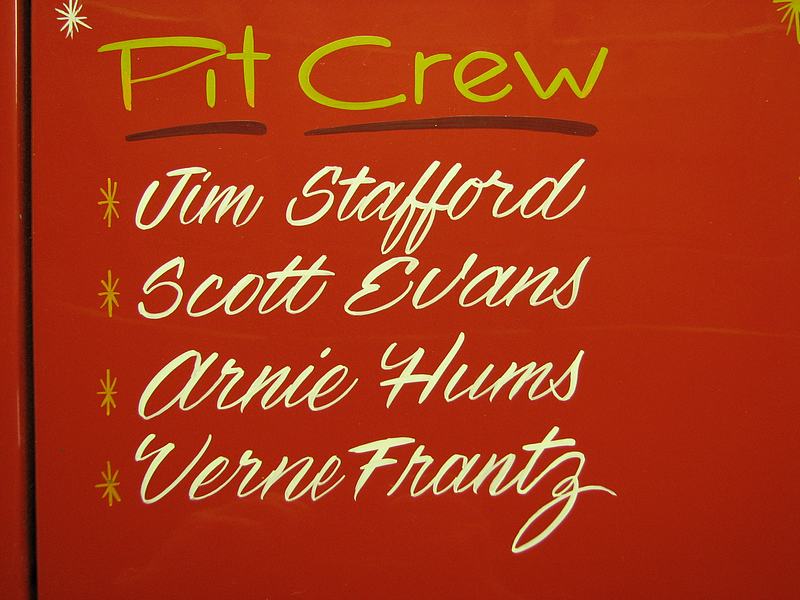 Pit Crew
Jim Stafford
Scott Evans
Arnie Hums
Verne Frantz